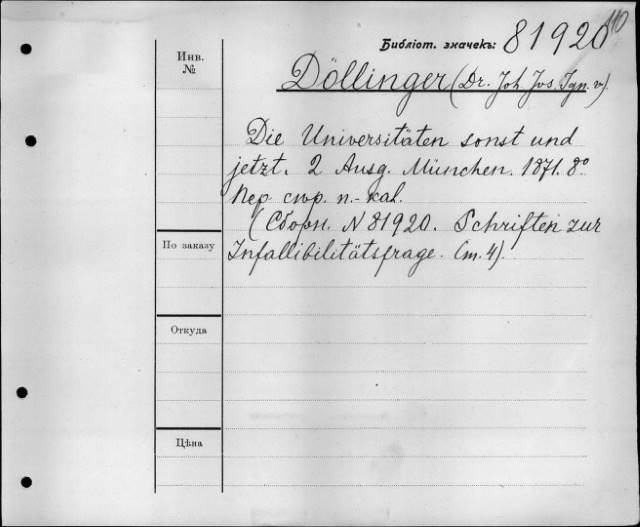 110
Библіот. значекъ: 81920
Инв. №
Döllinger (Dr. Joh. Jos. Ign. v.)
Die Universitäten sonst und
jetzt. 2 Ausg. München. 1871. 8º
Пер
(Сборн. N 81920. Schriften zur
По заказу
Infallibilitätsfrage. (т. 4).
Откуда
Цѣна